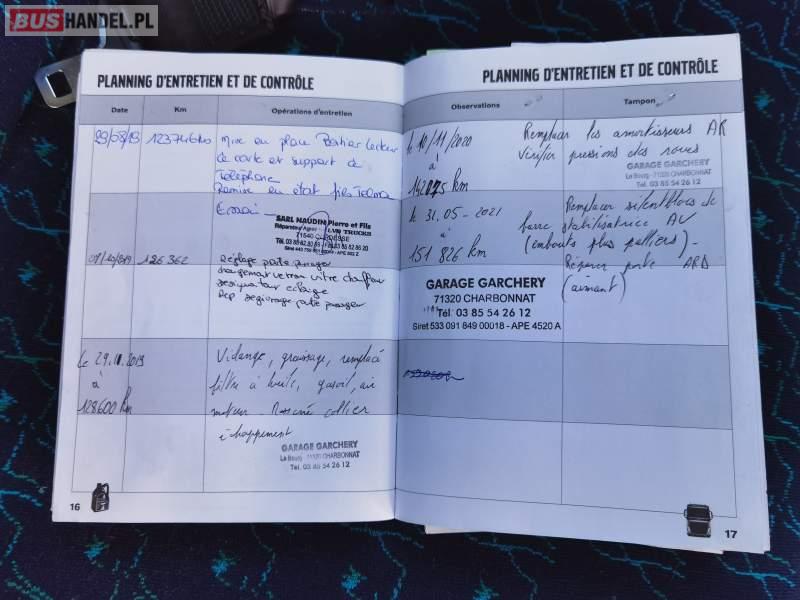 BUSHANDEL.PL
PLANNING D'ENTRETIEN ET DE CONTRÔLE
Date Km Opérations d'entretien
29/08/19 123746km Mise en place Boitier Lecteur
de carte et support de
Téléphone
Remise en état files Telma
Essai
SARL NAUDIN Pierre et Fils
Réparateur Agréé
TRUCKS
71540
Tél. 03 85 82 60 03 85 82 86 20
01/10/2019 126 362 Réglage porte passager
changement verrou vitre chauffeur
éclairage
porte passager
Le 29.11.2019 Vidange, graissage, remplacé
à filtre à huile, gasoil, air
128600 km moteur. Resserré collier
échappement
GARAGE GARCHERY
Le Bourg - 71320 CHARBONNAT
Tél. 03 85 54 26 12
16
PLANNING D'ENTRETIEN ET DE CONTRÔLE
Observations Tampon
Le 10/11/2020 Remplacer les amortisseurs AR
à Vérifier pressions des roues
km
GARAGE GARCHERY
Le Bourg - 71320 CHARBONNAT
Tél. 03 85 54 26 12
Le 31.05-2021 Remplacer silentblocs de
à barre stabilisatrice AV
151 826 km (embouts plus palliers) -
Réparer porte ARD
(aimant)
GARAGE GARCHERY
71320 CHARBONNAT
Tél. 03 85 54 26 12
Siret 533 091 849 00018 - APE 4520 A
17